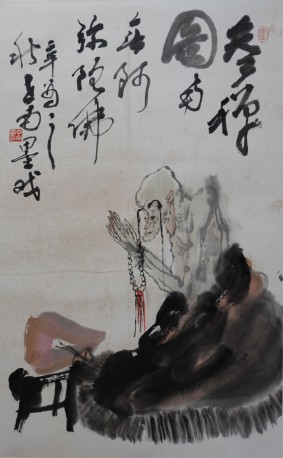 参禅
圖南
无阿
弥陀佛
辛酉之
秋墨戏